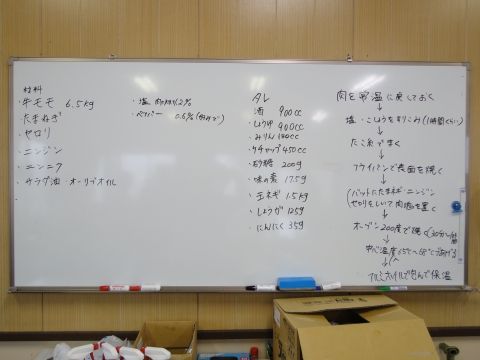 材料
・牛モモ 6.5kg
・たまねぎ
・セロリ
・ニンジン
・ニンニク
・サラダ油・オーリブオイル
・塩 2%
・ペイパー 0.6%
タレ
酒 900cc
・しょうゆ 900cc
・みりん 180cc
・ケチャップ 450cc
・砂糖 200g
・味の素 17.5g
・玉ネギ 1.5kg
・しょうが 125g
・にんにく 35g
肉を常温に戻しておく
↓
塩・こしょうをすりこみ(1時間くらい)
↓
たこ糸でまく
↓
フライパンで表面を焼く
↓
(バットにたまネギ・ニンジン
セロリをしいて肉塊を置く
↓
オーブン200度で焼く
↓
中心温度
↓
アルミホイルで包んで保温